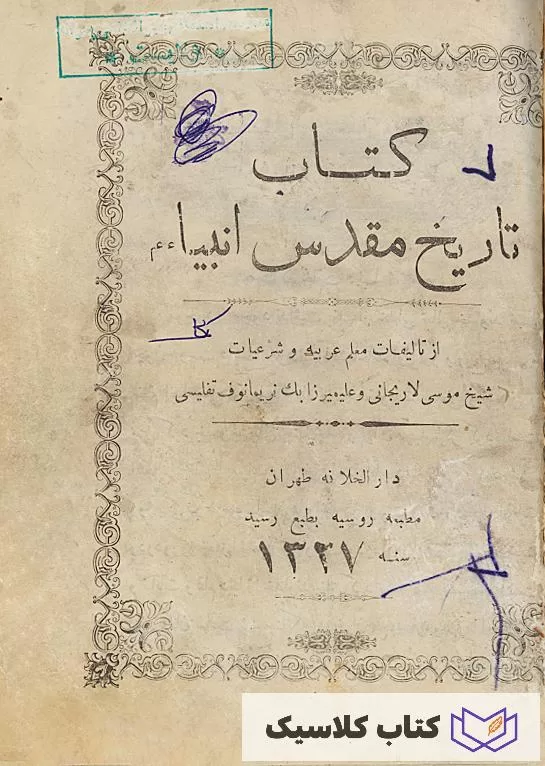 کتاب
تاریخ مقدس انبیاء ءم
از تالیفات معلم عربیه و شرعیات
شیخ موسی لاریجانی و علیمیرزا بك نریمانوف تفلیسی
دار الخلانه طهران
مطبعه روسیه بطبع رسید
سنه ۱۳۲۷
کتاب کلاسیک